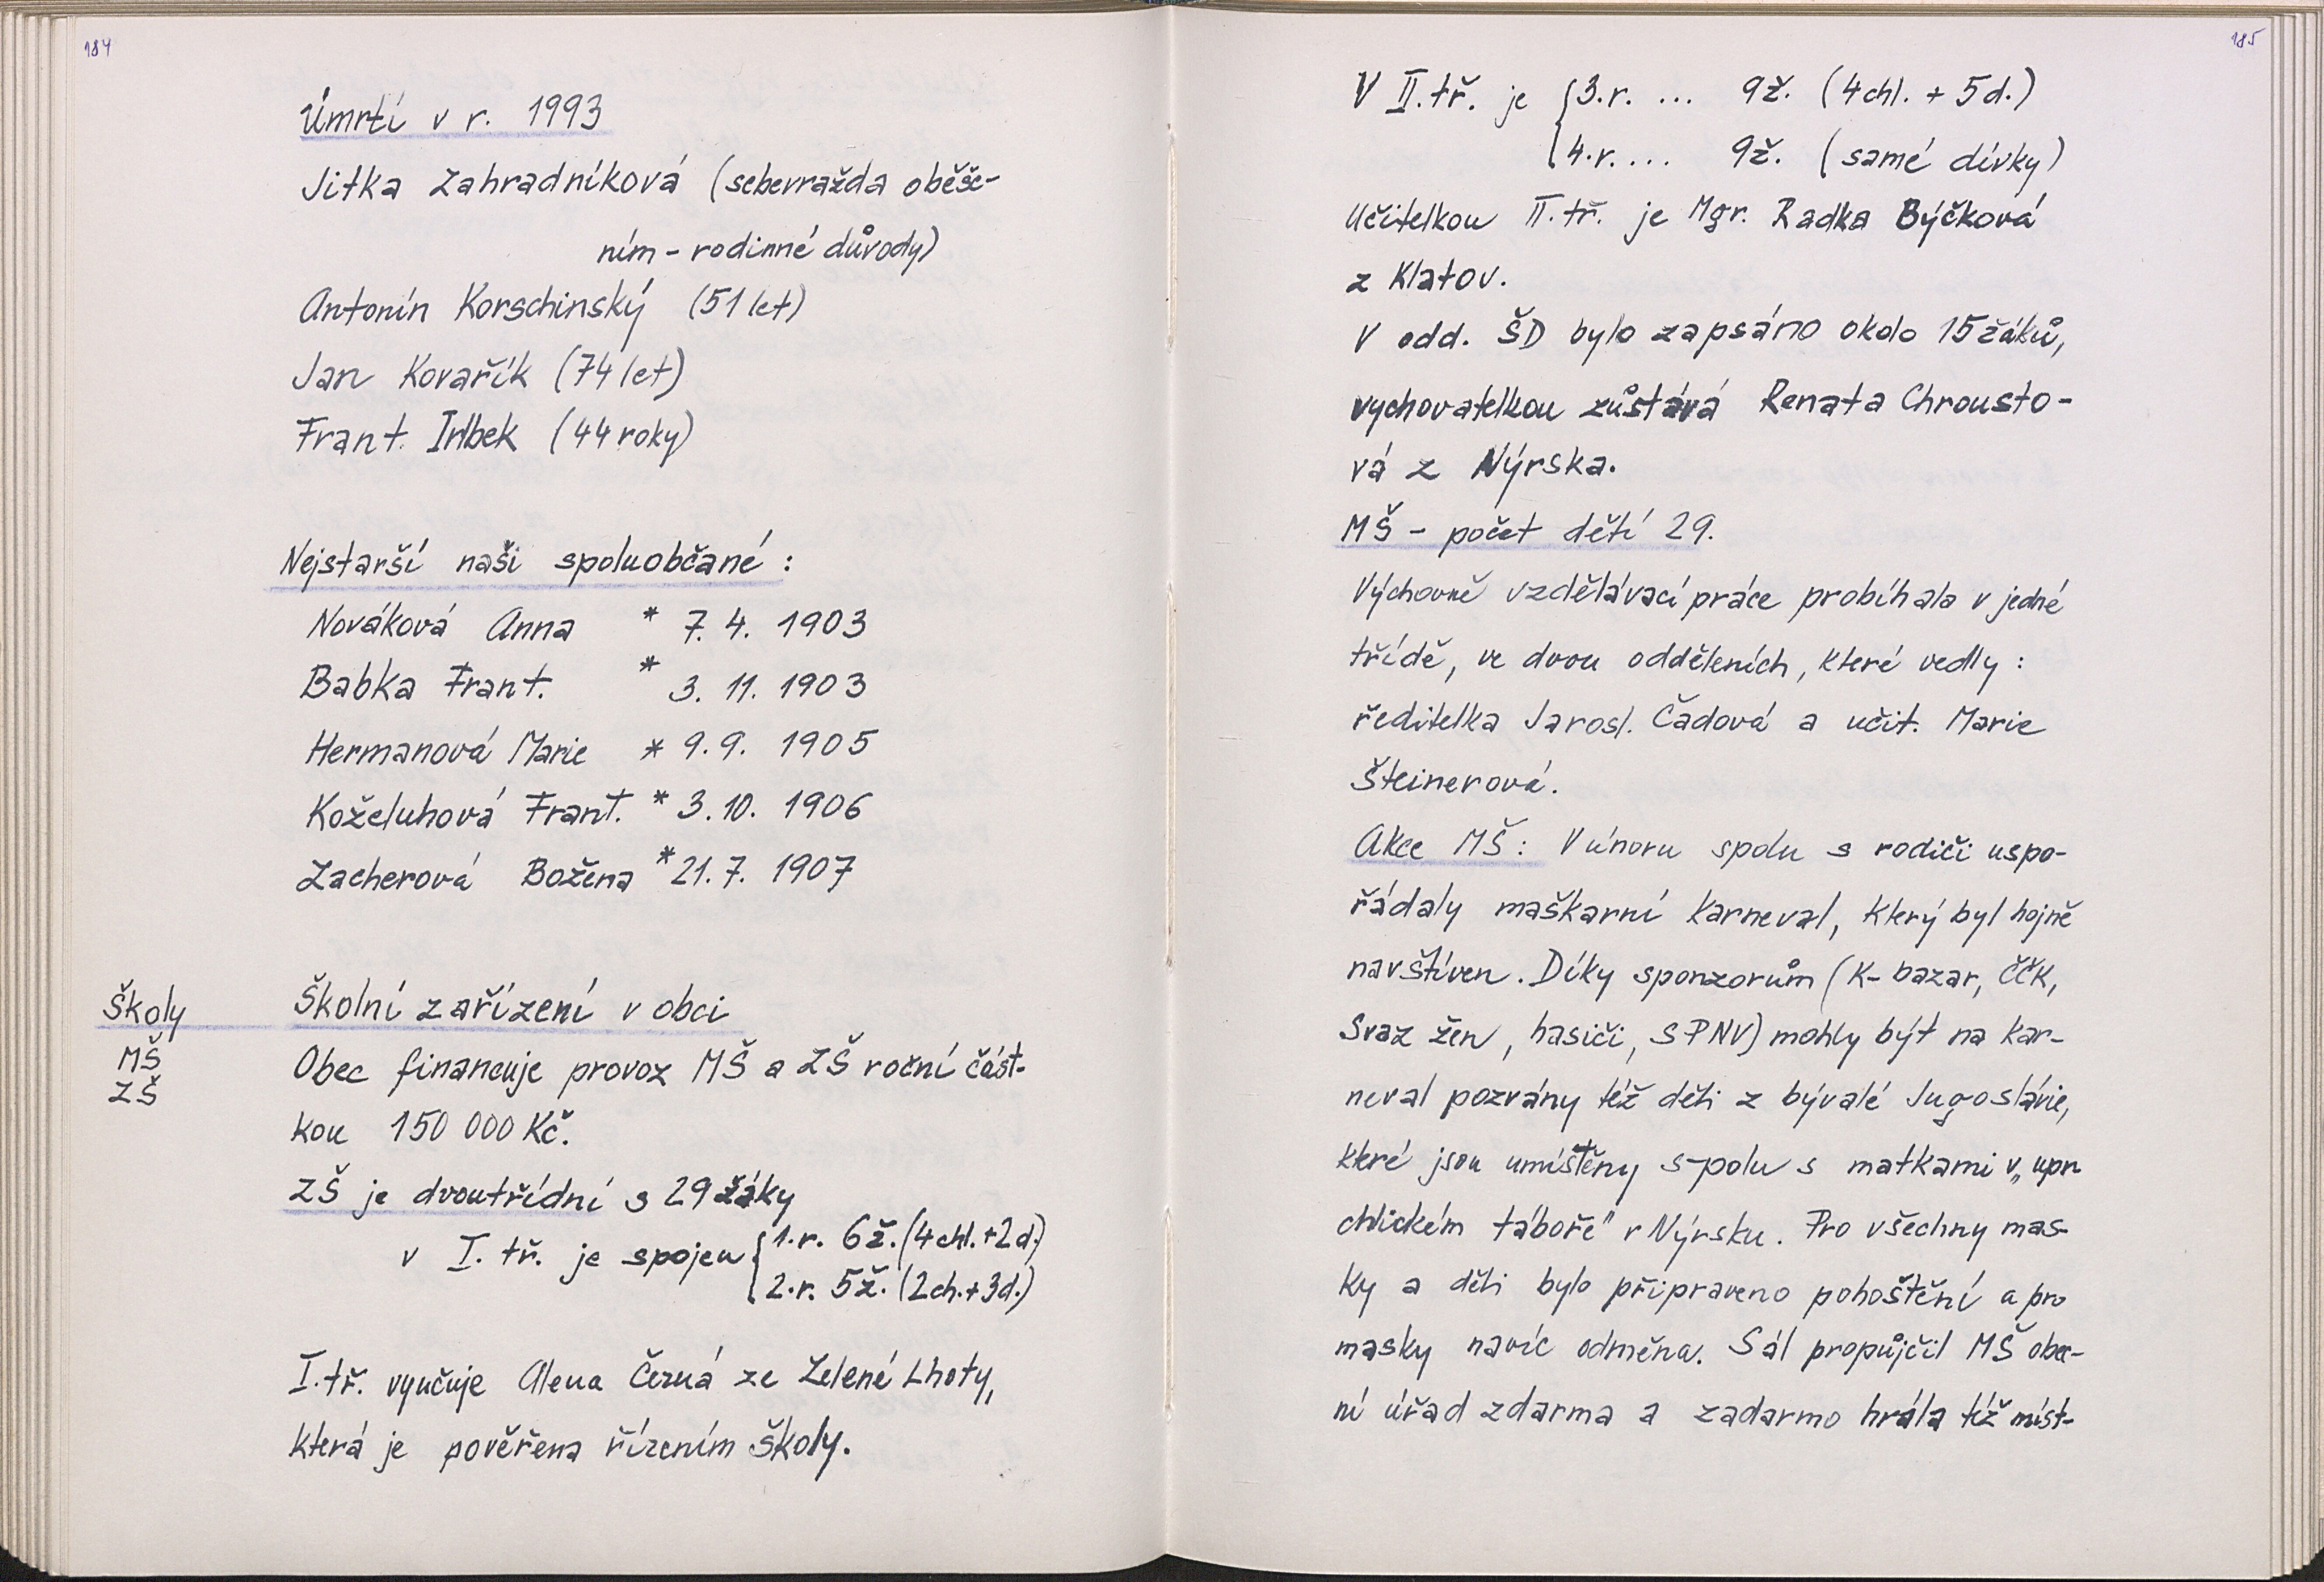 184
Úmrtí v r. 1993
Jitka Zahradníková (sebevražda oběše-
ním - rodinné důvody)
Antonín Korschinský (51 let)
Jan Kovařík (74 let)
Frant. Irlbek (44 roky)
Nejstarší naši spoluobčané :
Nováková Anna * 7. 4. 1903
Babka Frant. * 3. 11. 1903
Hermanová Marie * 9. 9. 1905
Koželuhová Frant. * 3. 10. 1906
Zacherová Božena * 21. 7. 1907
Školy
MŠ
ZŠ
Školní zařízení v obci
Obec financuje provoz MŠ a ZŠ roční část-
kou 150 000 Kč.
ZŠ je dvoutřídní s 29 žáky
v I. tř. je spojen { 1. r. 6 ž. (4 chl. + 2 d.)
2. r. 5 ž. (2 ch. + 3 d.)
I. tř. vyučuje Alena Černá ze Zelené Lhoty,
která je pověřena řízením školy.
185
V II. tř. je { 3. r. ... 9 ž. (4 chl. + 5 d.)
4. r. ... 9 ž. (samé dívky)
Učitelkou II. tř. je Mgr. Radka Býčková
z Klatov.
V odd. ŠD bylo zapsáno okolo 15 žáků,
vychovatelkou zůstává Renata Chrousto-
vá z Nýrska.
MŠ - počet dětí 29.
Výchovně vzdělávací práce probíhala v jedné
třídě, ve dvou odděleních, které vedly :
ředitelka Jarosl. Čadová a učit. Marie
Šteinerová.
Akce MŠ : V únoru spolu s rodiči uspo-
řádaly maškarní karneval, který byl hojně
navštíven. Díky sponzorům (K- bazar, ČČK,
Svaz žen, hasiči, SPNV) mohly být na kar-
neval pozvány též děti z bývalé Jugoslávie,
které jsou umístěny spolu s matkami v „upr
chlickém táboře" v Nýrsku. Pro všechny mas-
ky a děti bylo připraveno pohoštění a pro
masky navíc odměna. Sál propůjčil MŠ obec-
ní úřad zdarma a zadarmo hrála též míst-